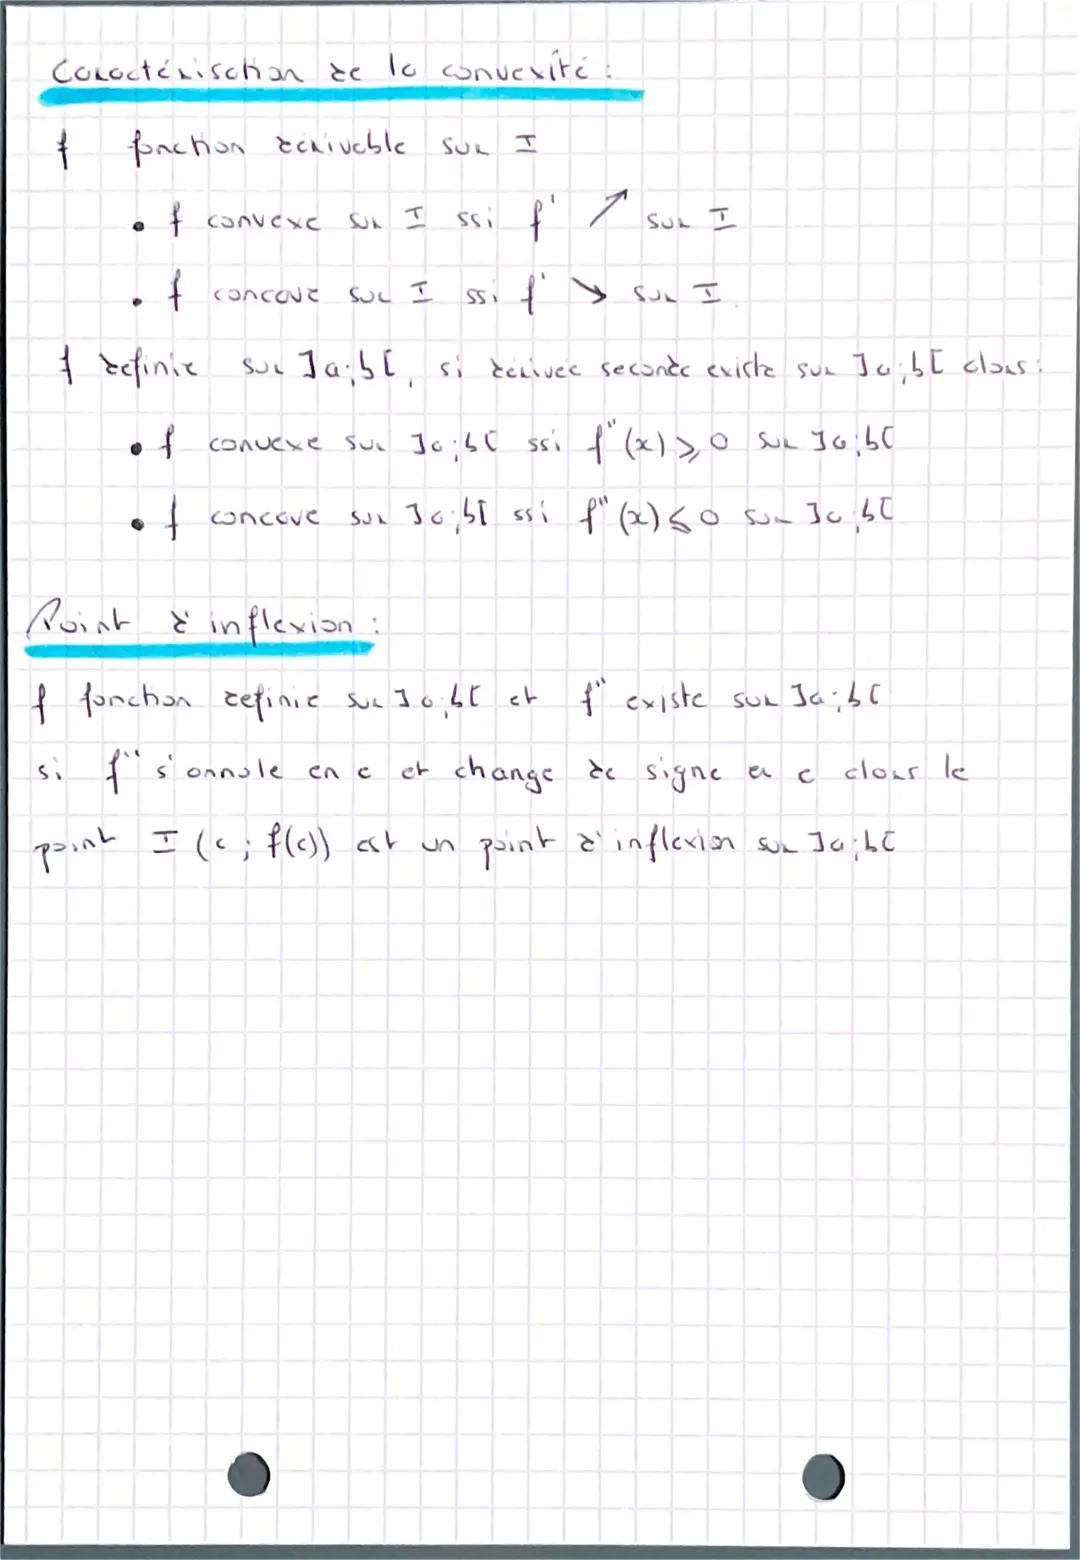 Caractérisation de la convexité :
f fonction dérivable sur I
• f convexe sur I ssi f' ↗ sur I
• f concave sur I ssi f' ↘ sur I
f definie sur ]a;b[, si dérivée seconde existe sur ]a;b[ alors :
• f convexe sur ]a;b[ ssi f''(x) ⩾ 0 sur ]a;b[
• f concave sur ]a;b[ ssi f''(x) ⩽ 0 sur ]a;b[
Point d'inflexion :
f fonction definie sur ]a;b[ et f'' existe sur ]a;b[
si f'' s'annule en c et change de signe en c alors le
point I (c ; f(c)) est un point d'inflexion sur ]a;b[